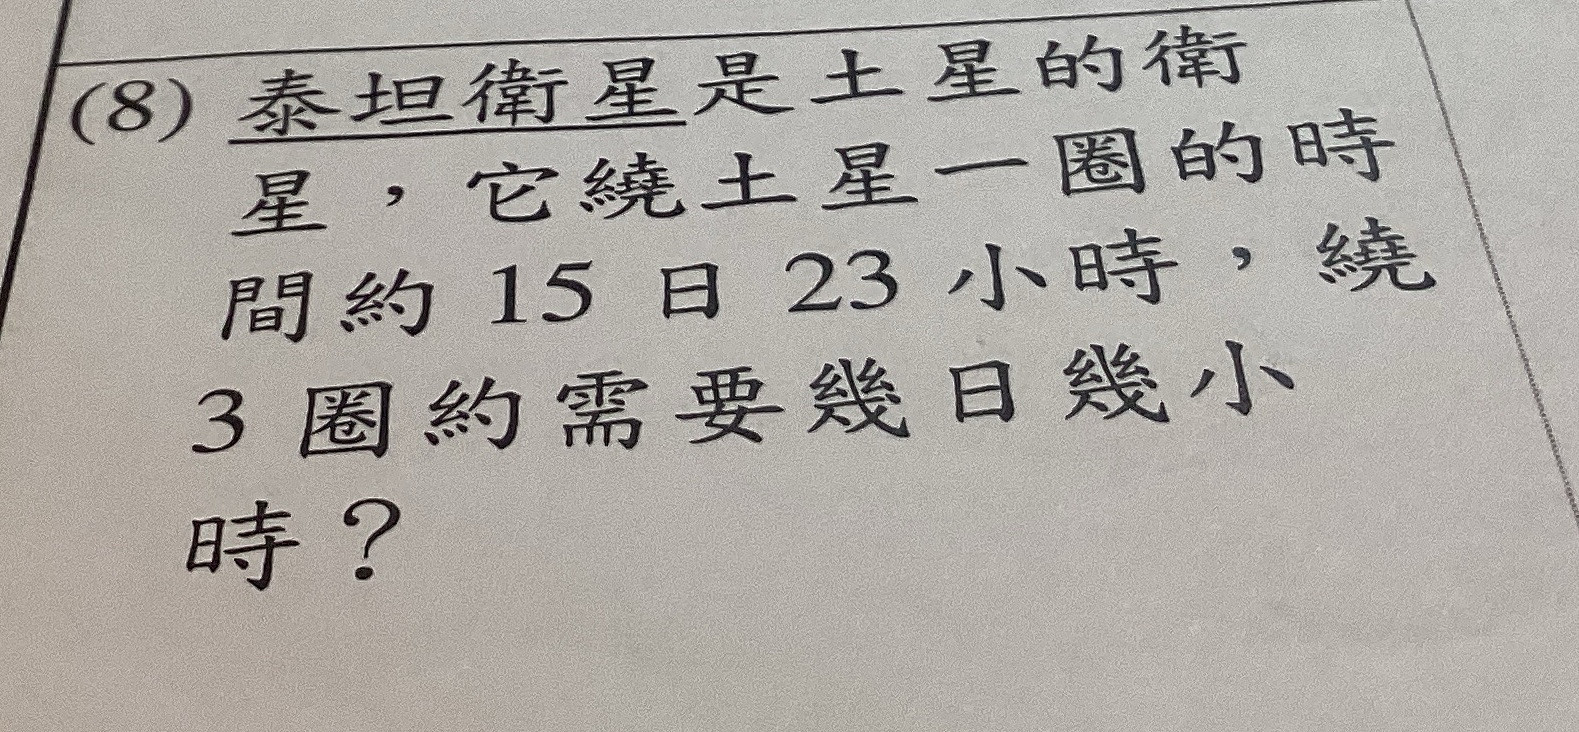 (8) 泰坦衛星是土星的衛
星，它繞土星一圈的時
間約 15 日 23 小時，繞
3 圈約需要幾日幾小
時？